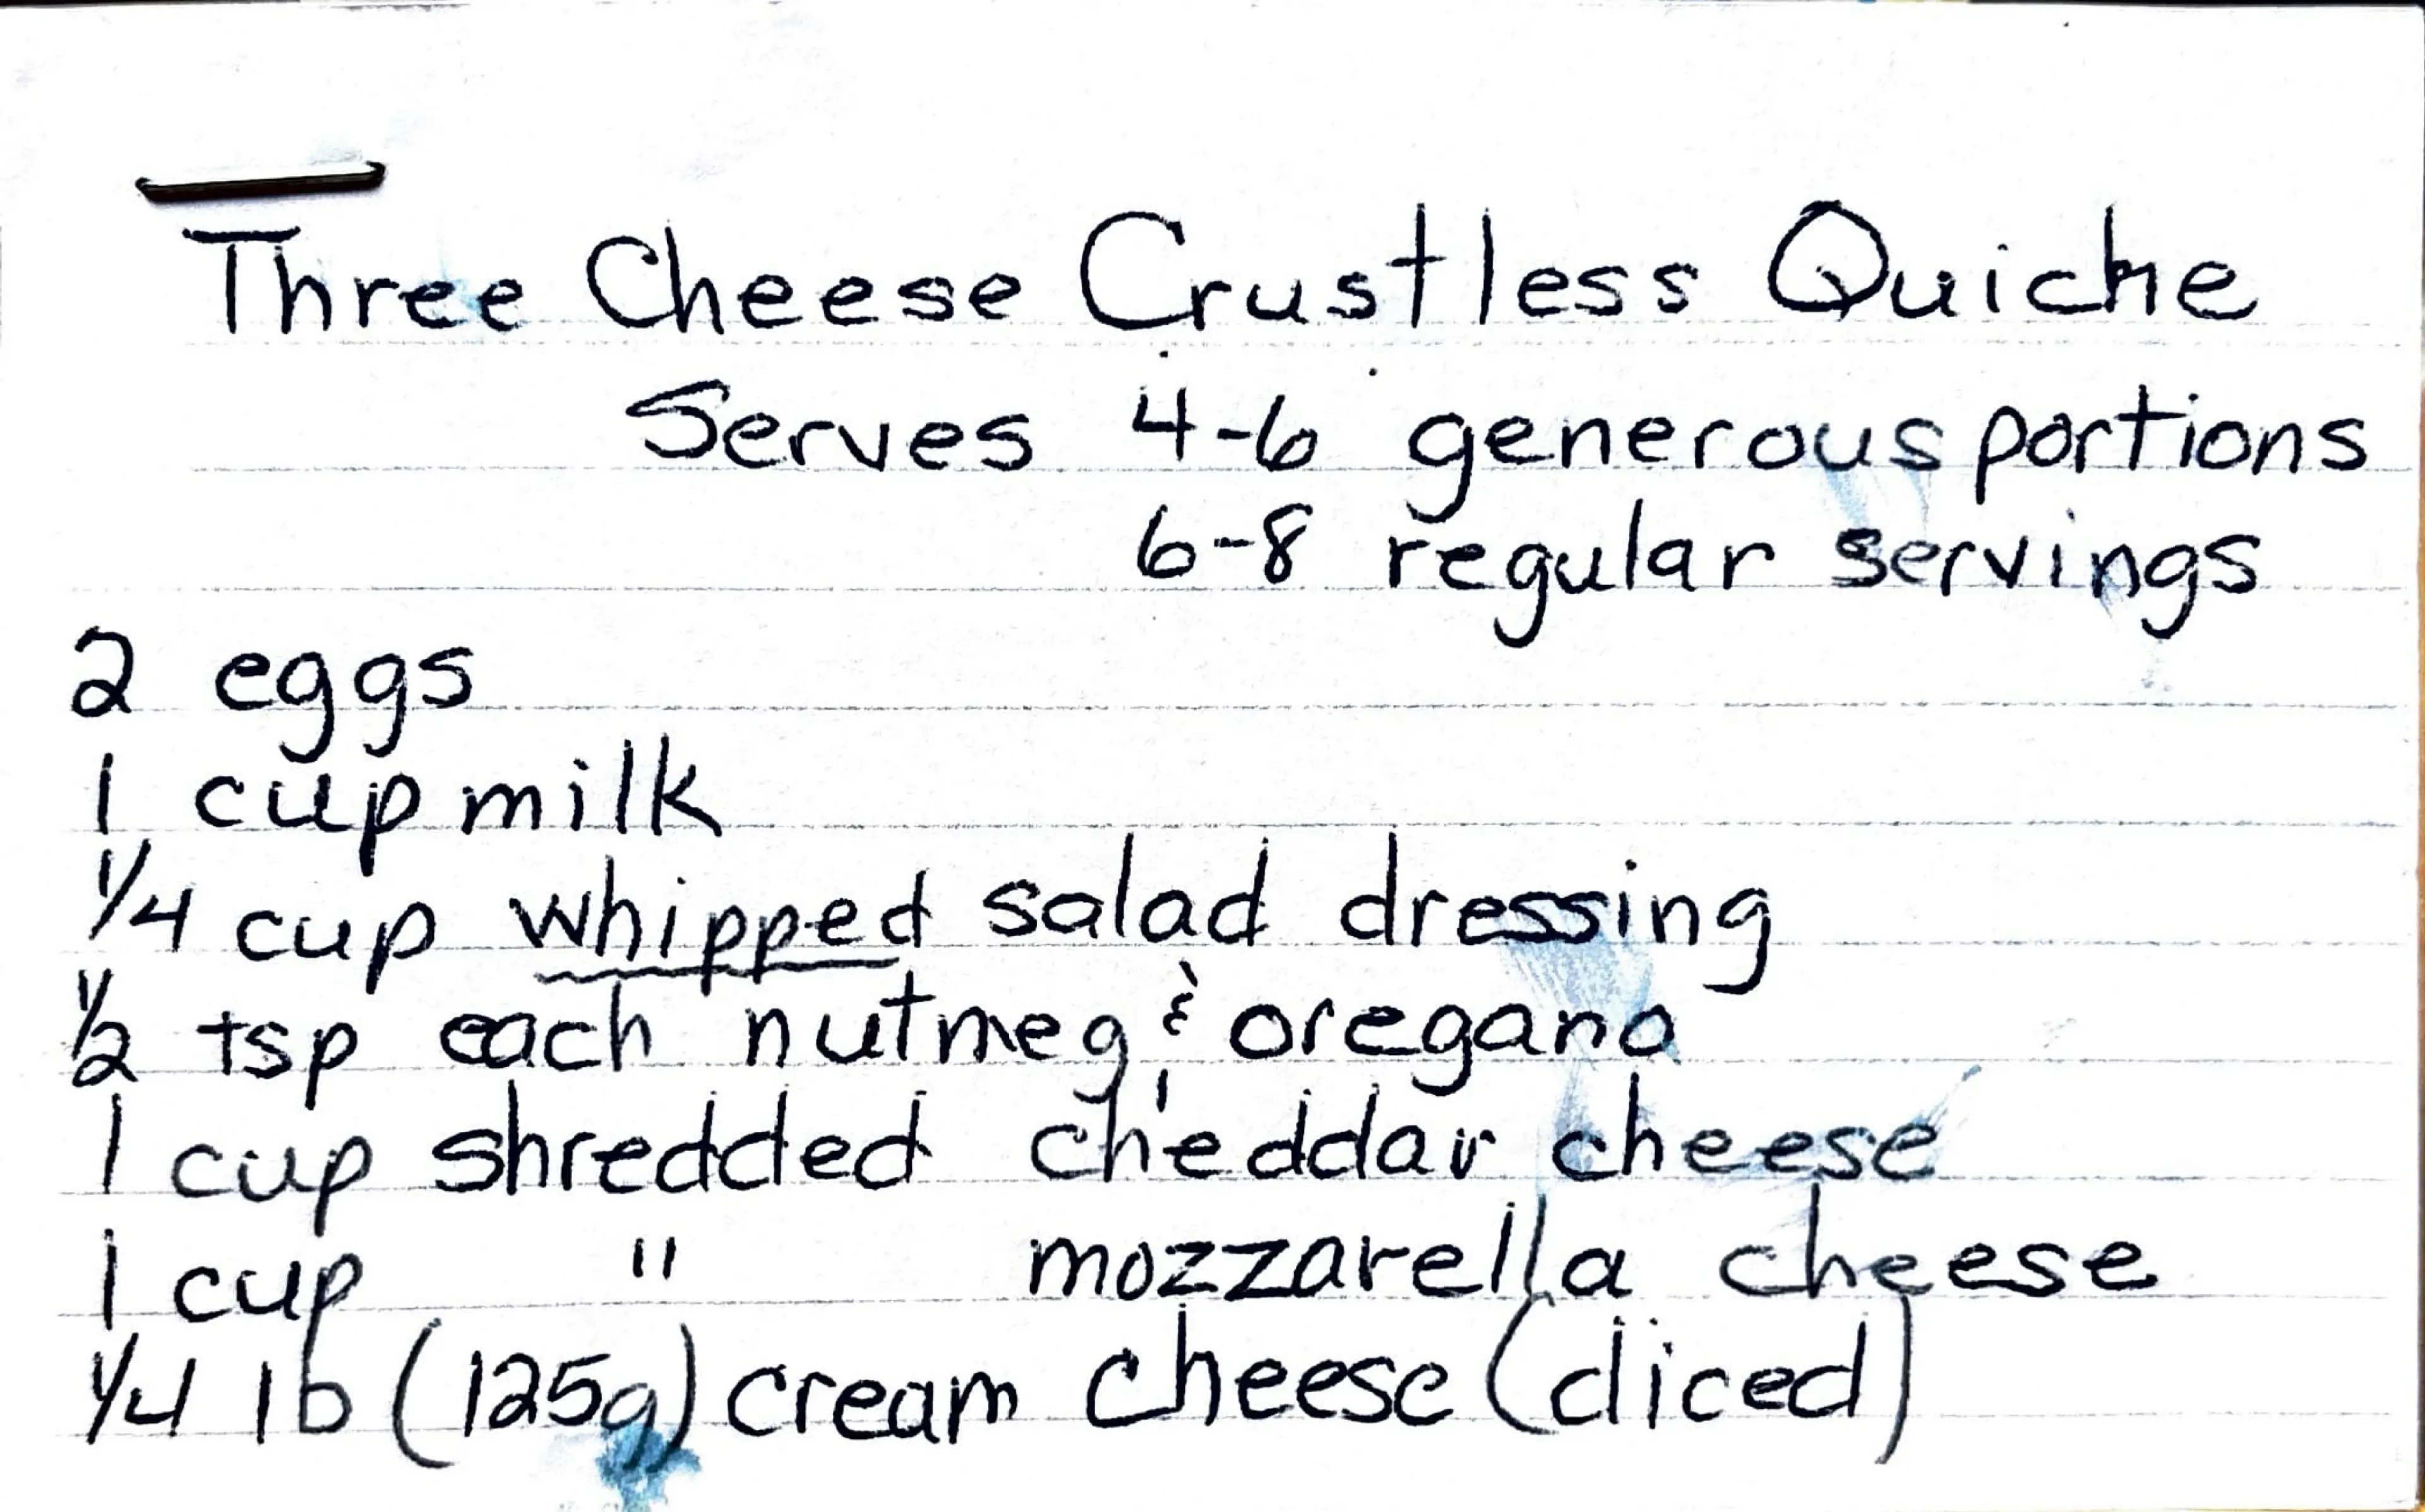 Three Cheese Crustless Quiche
Serves 4-6 generous portions
6-8 regular servings
2 eggs
1 cup milk
1/4 cup whipped salad dressing
1/2 tsp each nutmeg & oregano
1 cup shredded cheddar cheese
1 cup " mozzarella cheese
1/4 lb (125g) cream cheese (diced)